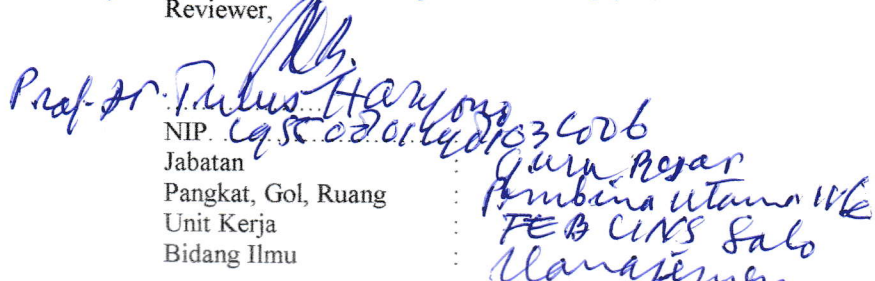 Reviewer,
Prof. Dr. Tulus Haryono
NIP.
Jabatan : Guru Besar
Pangkat, Gol, Ruang : Pembina Utama IV/e
Unit Kerja : FEB UNS Solo
Bidang Ilmu : Manajemen